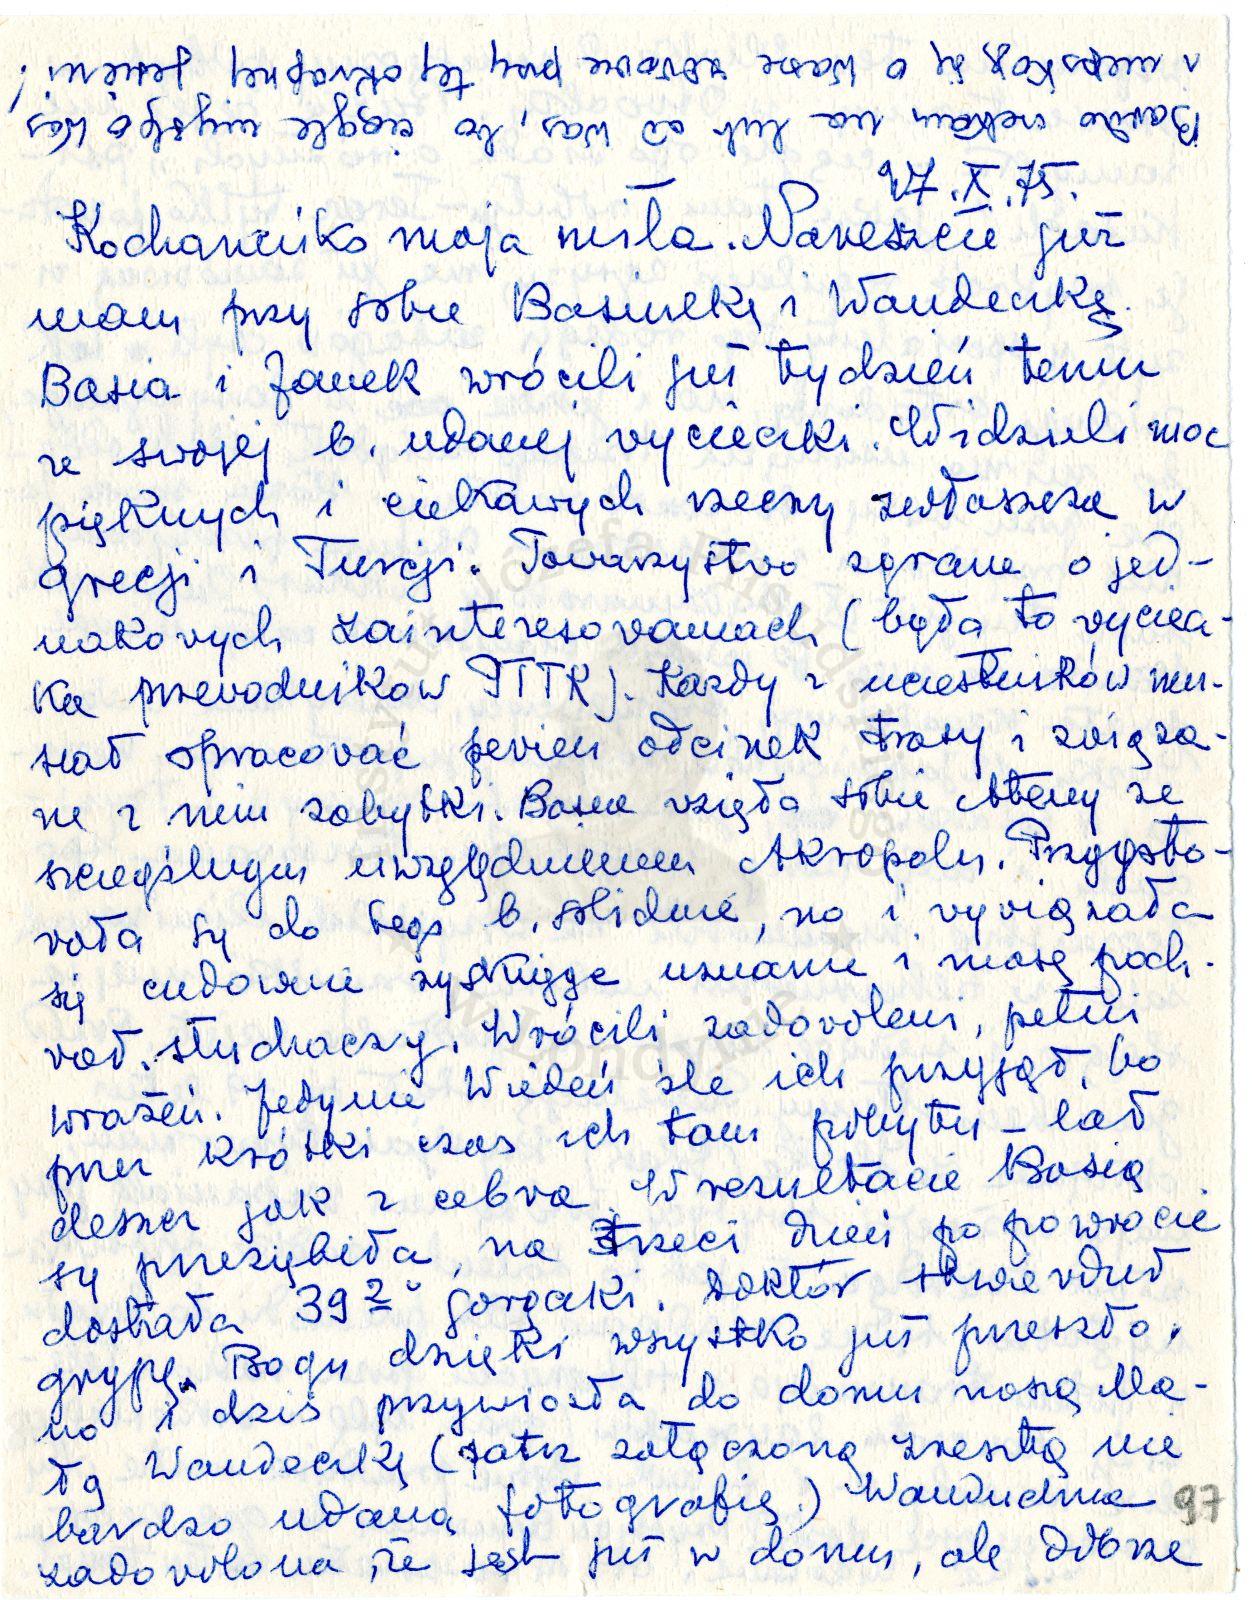 Bardzo czekam na list od Was, bo ciągle myślę o Was
i niepokoję się o Wasze zdrowie przy tej okropnej jesieni!
27.X.75.
Kochaneńko moja miła. Nareszcie już
mam przy sobie Basiulkę i Wandeczkę.
Basia i Janek wrócili już tydzień temu
ze swojej b. udanej wycieczki. Widzieli moc
pięknych i ciekawych rzeczy zwłaszcza w
Grecji i Turcji. Towarzystwo zgrane o jed-
nakowych zainteresowaniach (była to wyciecz-
ka przewodników PTTK). Każdy z uczestników mu-
siał opracować pewien odcinek trasy i związa-
ne z nim zabytki. Basia wzięła sobie Ateny ze
szczególnym uwzględnieniem Akropolu. Przygoto-
wała się do tego b. solidnie, no i wywiązała
się cudownie zyskując uznanie i masę poch-
wał słuchaczy. Wrócili zadowoleni, pełni
wrażeń. Jedynie Wiedeń źle ich przyjął, bo
przez krótki czas ich tam pobytu – lał
deszcz jak z cebra. W rezultacie Basia
się przeziębiła, na trzeci dzień po powrocie
dostała 39² gorączki. Doktór stwierdził
grypę. Bogu dzięki wszystko już przeszło,
no i dziś przywiozła do domu naszą Ma-
łą Wandeczkę (patrz załączoną zresztą nie
bardzo udaną fotografię.) Wandudnia
zadowolona, że jest już w domu, ale dobrze
97
Józefa Piłsudskiego
w Londynie